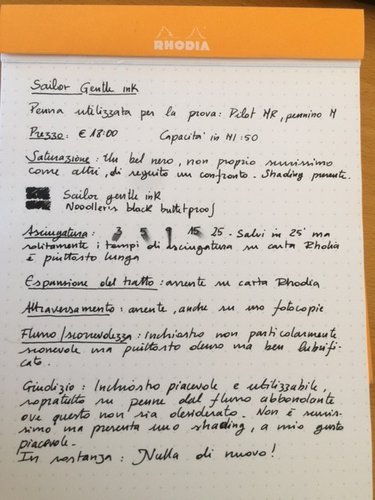 RHODIA
Sailor Gentle ink
Penna utilizzata per la prova: Pilot MR, pennino M
Prezzo: € 18:00 Capacità in Ml: 50
Saturazione: Un bel nero, non proprio nerissimo
come altri, di seguito un confronto. Shading presente.
Sailor gentle ink
Noodler's black bulletproof
Asciugatura: 3 5 1 15 25. Salvi in 25' ma
solitamente i tempi di asciugatura su carta Rhodia
è piuttosto lunga
Espansione del tratto: assente su carta Rhodia
Attraversamento: assente, anche su uso fotocopie
Flusso/scorrevolezza: inchiostro non particolarmente
scorrevole ma piuttosto denso ma ben lubrifi-
cato.
Giudizio: Inchiostro piacevole e utilizzabile,
sopratutto su penne dal flusso abbondante
ove questo non sia desiderato. Non è neris-
simo ma presenta uno shading, a mio gusto
piacevole.
In sostanza: Nulla di nuovo!